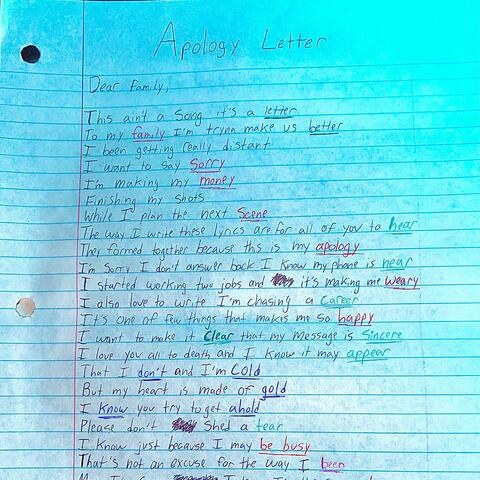 Apology Letter
Dear Family,
This ain't a song it's a letter
To my family I'm trynn make us better
I been getting really distant
I want to say Sorry
I'm making my money
Finishing my shots
While I plan the next Scene
The way I write these lyrics are for all of you to hear
They formed together because this is my apology
I'm sorry I don't answer back I know my phone is near
I started working two jobs and it's making me weary
I also love to write I'm chasing a Career
It's one of few things that makes me so happy
I want to make it Clear that my message is Sincere
I love you all to death and I know it may appear
That I don't and I'm Cold
But my heart is made of gold
I know you try to get ahold
Please don't Shed a tear
I know just because I may be busy
That's not an excuse for the way I been